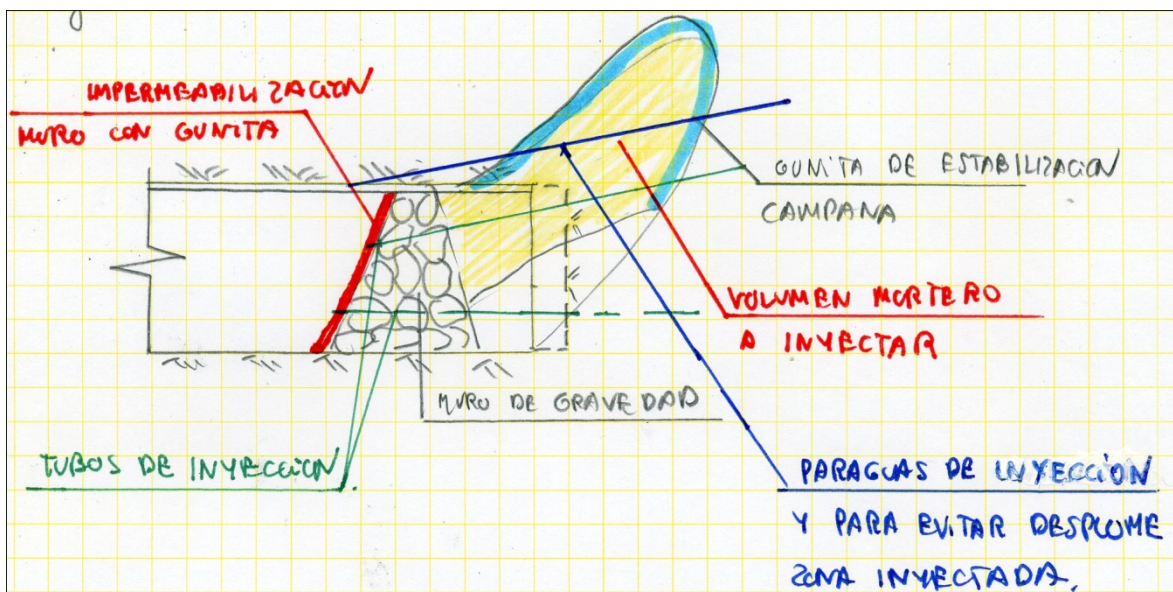 IMPERMEABILIZACION
MURO CON GUNITA
GUNITA DE ESTABILIZACION
CAMPANA
VOLUMEN MORTERO
A INYECTAR
MURO DE GRAVEDAD
TUBOS DE INYECCION
PARAGUAS DE INYECCIÓN
Y PARA EVITAR DESPLOME
ZONA INYECTADA.